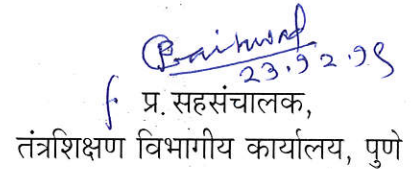 २३.१२.१९
प्र. सहसंचालक,
तंत्रशिक्षण विभागीय कार्यालय, पुणे